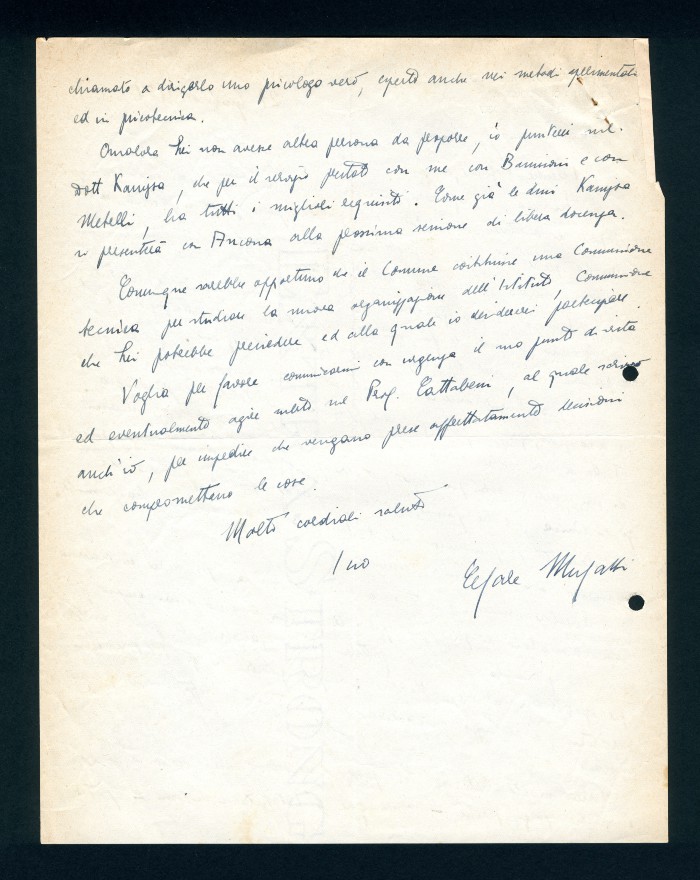 chiamato a dirigerlo uno psicologo vero, esperto anche nei metodi sperimentali
ed in psicotecnica.
Qualora Lei non avesse altra persona da proporre, io punterei sul
Dott Kanizsa, che per il servizio prestato con me con Bonaventura e con
Metelli, ha tutti i migliori requisiti. Come già le dissi Kanizsa
si presenterà con Ancona alla prossima sessione di libera docenza.
Comunque sarebbe opportuno che il Comune costituisse una Commissione
tecnica per studiare la nuova organizzazione dell'Istituto, Commissione
che Lei potrebbe presiedere ed alla quale io desidererei partecipare.
Voglia per favore comunicarmi con urgenza il suo punto di vista
ed eventualmente agire subito sul Prof. Cattabeni, al quale scrivo
anch'io, per impedire che vengano prese affrettatamente decisioni
che compromettano le cose.
Molto cordiali saluti
Suo
Cesare Musatti